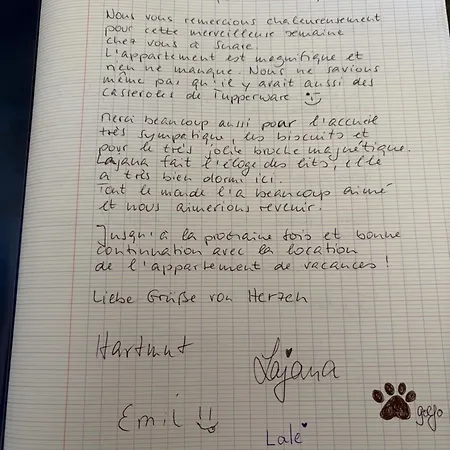 Nous vous remercions chaleureusement
pour cette merveilleuse semaine
chez vous à Sunare.
L'appartement est magnifique et
rien ne manque. Nous ne savions
même pas qu'il y avait aussi des
casseroles de Tupperware
Merci beaucoup aussi pour l'accueil
très sympatique, les biscuits et
pour le très jolie broche magnétique.
Lajana fait l'éloge des lits, elle
a très bien dormi ici.
Tout le monde l'a beaucoup aimé
et nous aimerions revenir.
Jusqu'à la prochaine fois et bonne
continuation avec la location
de l'appartement de vacances!
Liebe Grüße von Herzen
Hartmut
Lajana
Emil !!
Lale